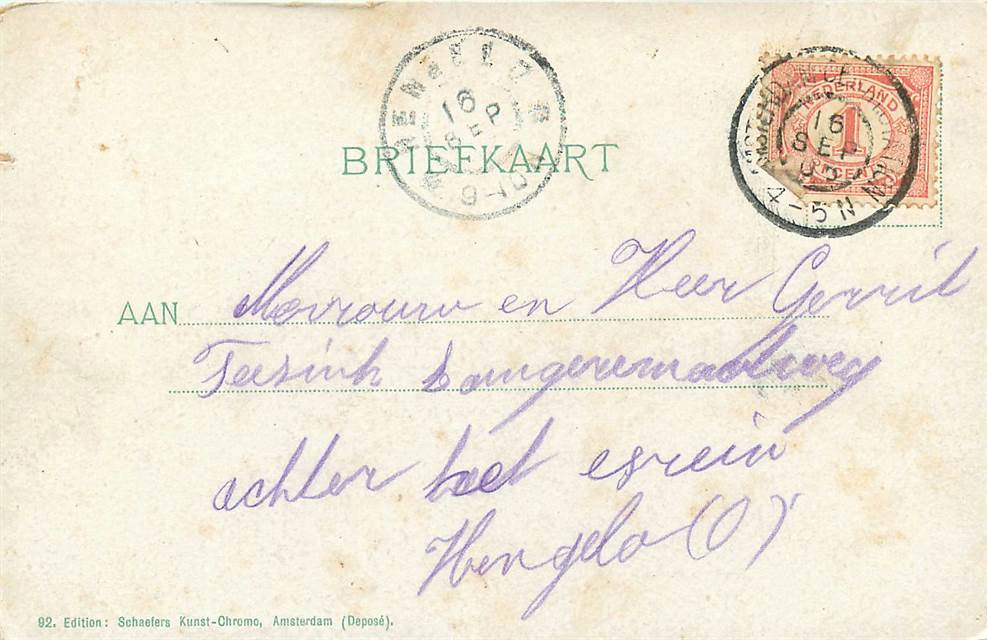 HENGELO
16
SEP
9-10V
NEDERLAND
1
CENT
16
SEP
4-5N
BRIEFKAART
AAN Mevrouw en Heer Gerrit
Teesink
achter het
Hengelo (O)
92. Edition: Schaefers Kunst-Chromo, Amsterdam (Deposé).